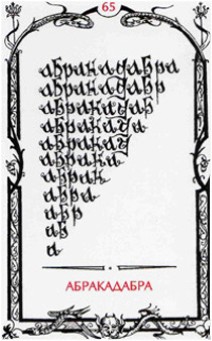 65
абракадабра
абракадабр
абракадаб
абракада
абракад
абрака
абрак
абра
абр
аб
а
АБРАКАДАБРА